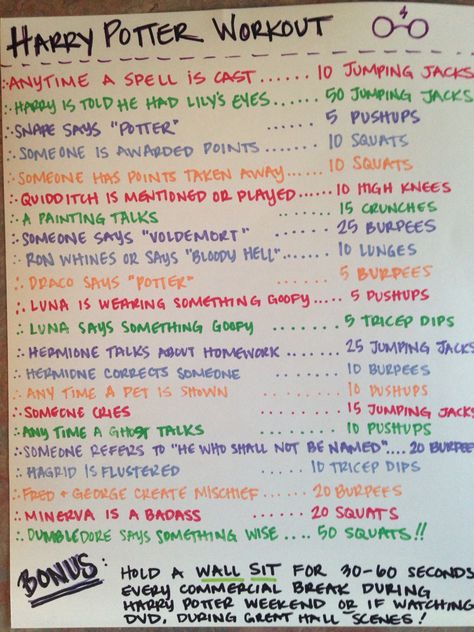 HARRY POTTER WORKOUT
∴ANYTIME A SPELL IS CAST...... 10 JUMPING JACKS
∴HARRY IS TOLD HE HAD LILY'S EYES....... 50 JUMPING JACKS
∴SNAPE SAYS "POTTER" ....... 5 PUSHUPS
∴SOMEONE IS AWARDED POINTS ....... 10 SQUATS
∴SOMEONE HAS POINTS TAKEN AWAY...... 10 SQUATS
∴QUIDDITCH IS MENTIONED OR PLAYED....10 HIGH KNEES
∴A PAINTING TALKS ...... 15 CRUNCHES
∴SOMEONE SAYS "VOLDEMORT" ...... 25 BURPEES
∴RON WHINES OR SAYS "BLOODY HELL"..... 10 LUNGES
∴DRACO SAYS "POTTER" ....... 5 BURPEES
∴LUNA IS WEARING SOMETHING GOOFY..... 5 PUSHUPS
∴LUNA SAYS SOMETHING GOOFY ...... 5 TRICEP DIPS
∴HERMIONE TALKS ABOUT HOMEWORK... 25 JUMPING JACKS
∴HERMIONE CORRECTS SOMEONE ...... 10 BURPEES
∴ANY TIME A PET IS SHOWN ....... 10 PUSHUPS
∴SOMEONE CRIES ....... 15 JUMPING JACKS
∴ANY TIME A GHOST TALKS ....... 10 PUSHUPS
∴SOMEONE REFERS TO "HE WHO SHALL NOT BE NAMED".... 20 BURPEES
∴HAGRID IS FLUSTERED ..... 10 TRICEP DIPS
∴FRED + GEORGE CREATE MISCHIEF..... 20 BURPEES
∴MINERVA IS A BADASS ...... 20 SQUATS
∴DUMBLEDORE SAYS SOMETHING WISE.... 50 SQUATS!!
BONUS: HOLD A WALL SIT FOR 30-60 SECONDS
EVERY COMMERCIAL BREAK DURING
HARRY POTTER WEEKEND OR IF WATCHING
DVD, DURING GREAT HALL SCENES!